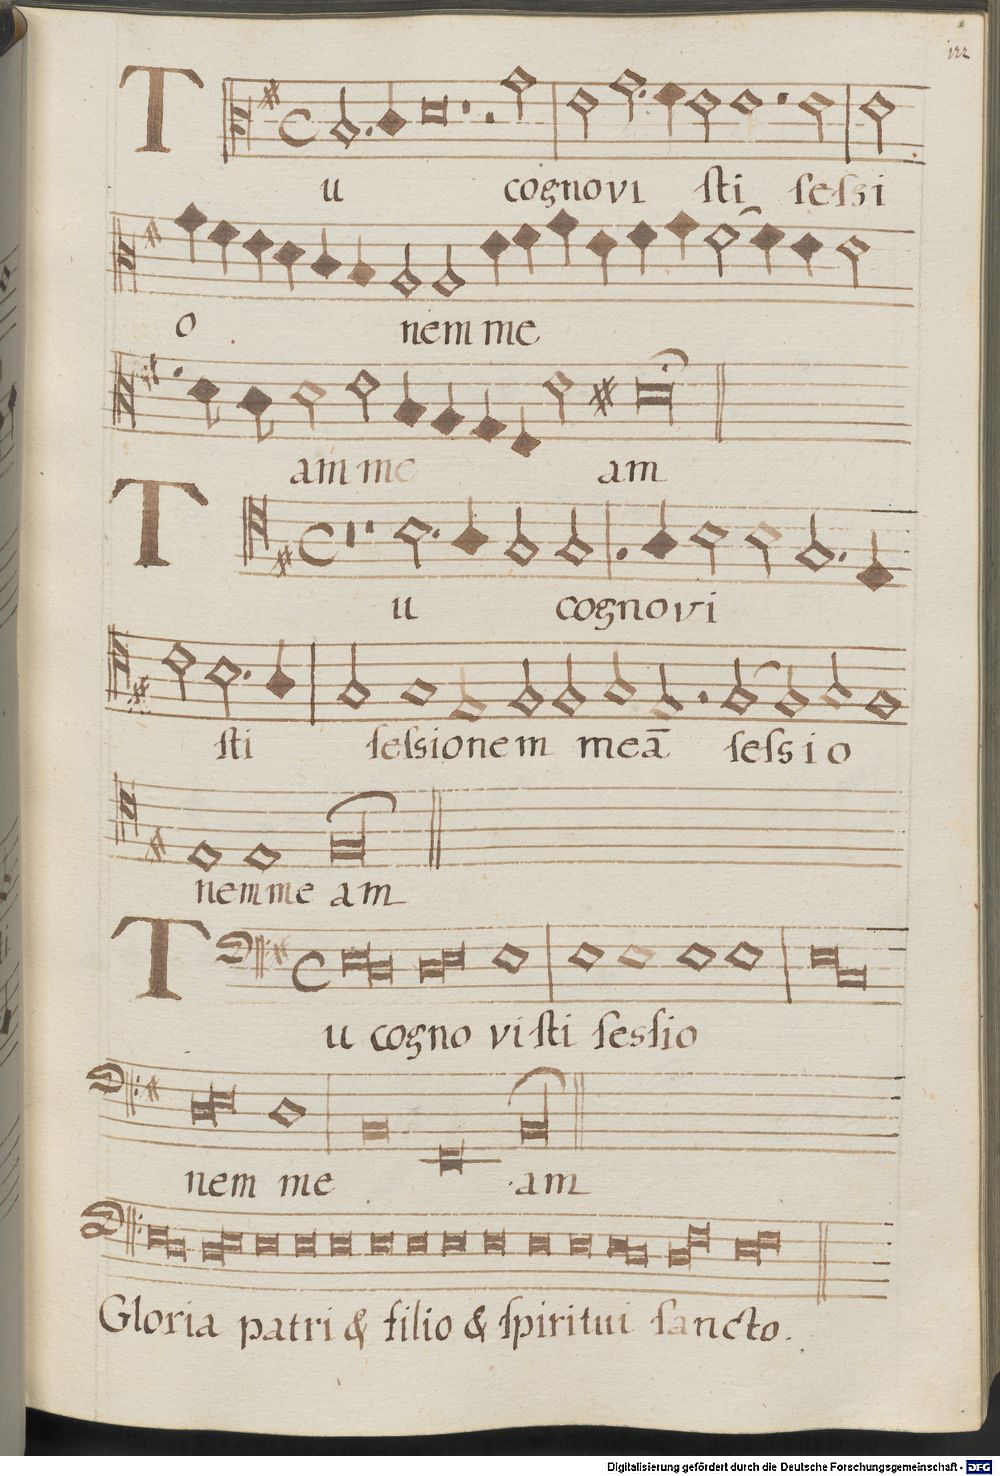 122
Tu cognovi sti sessi
o nem me
am me am
Tu cognovi
sti sessionem meā sessio
nem me am
Tu cogno visti sessio
nem me am
Gloria patri & filio & spiritui sancto.
Digitalisierung gefördert durch die Deutsche Forschungsgemeinschaft - DFG